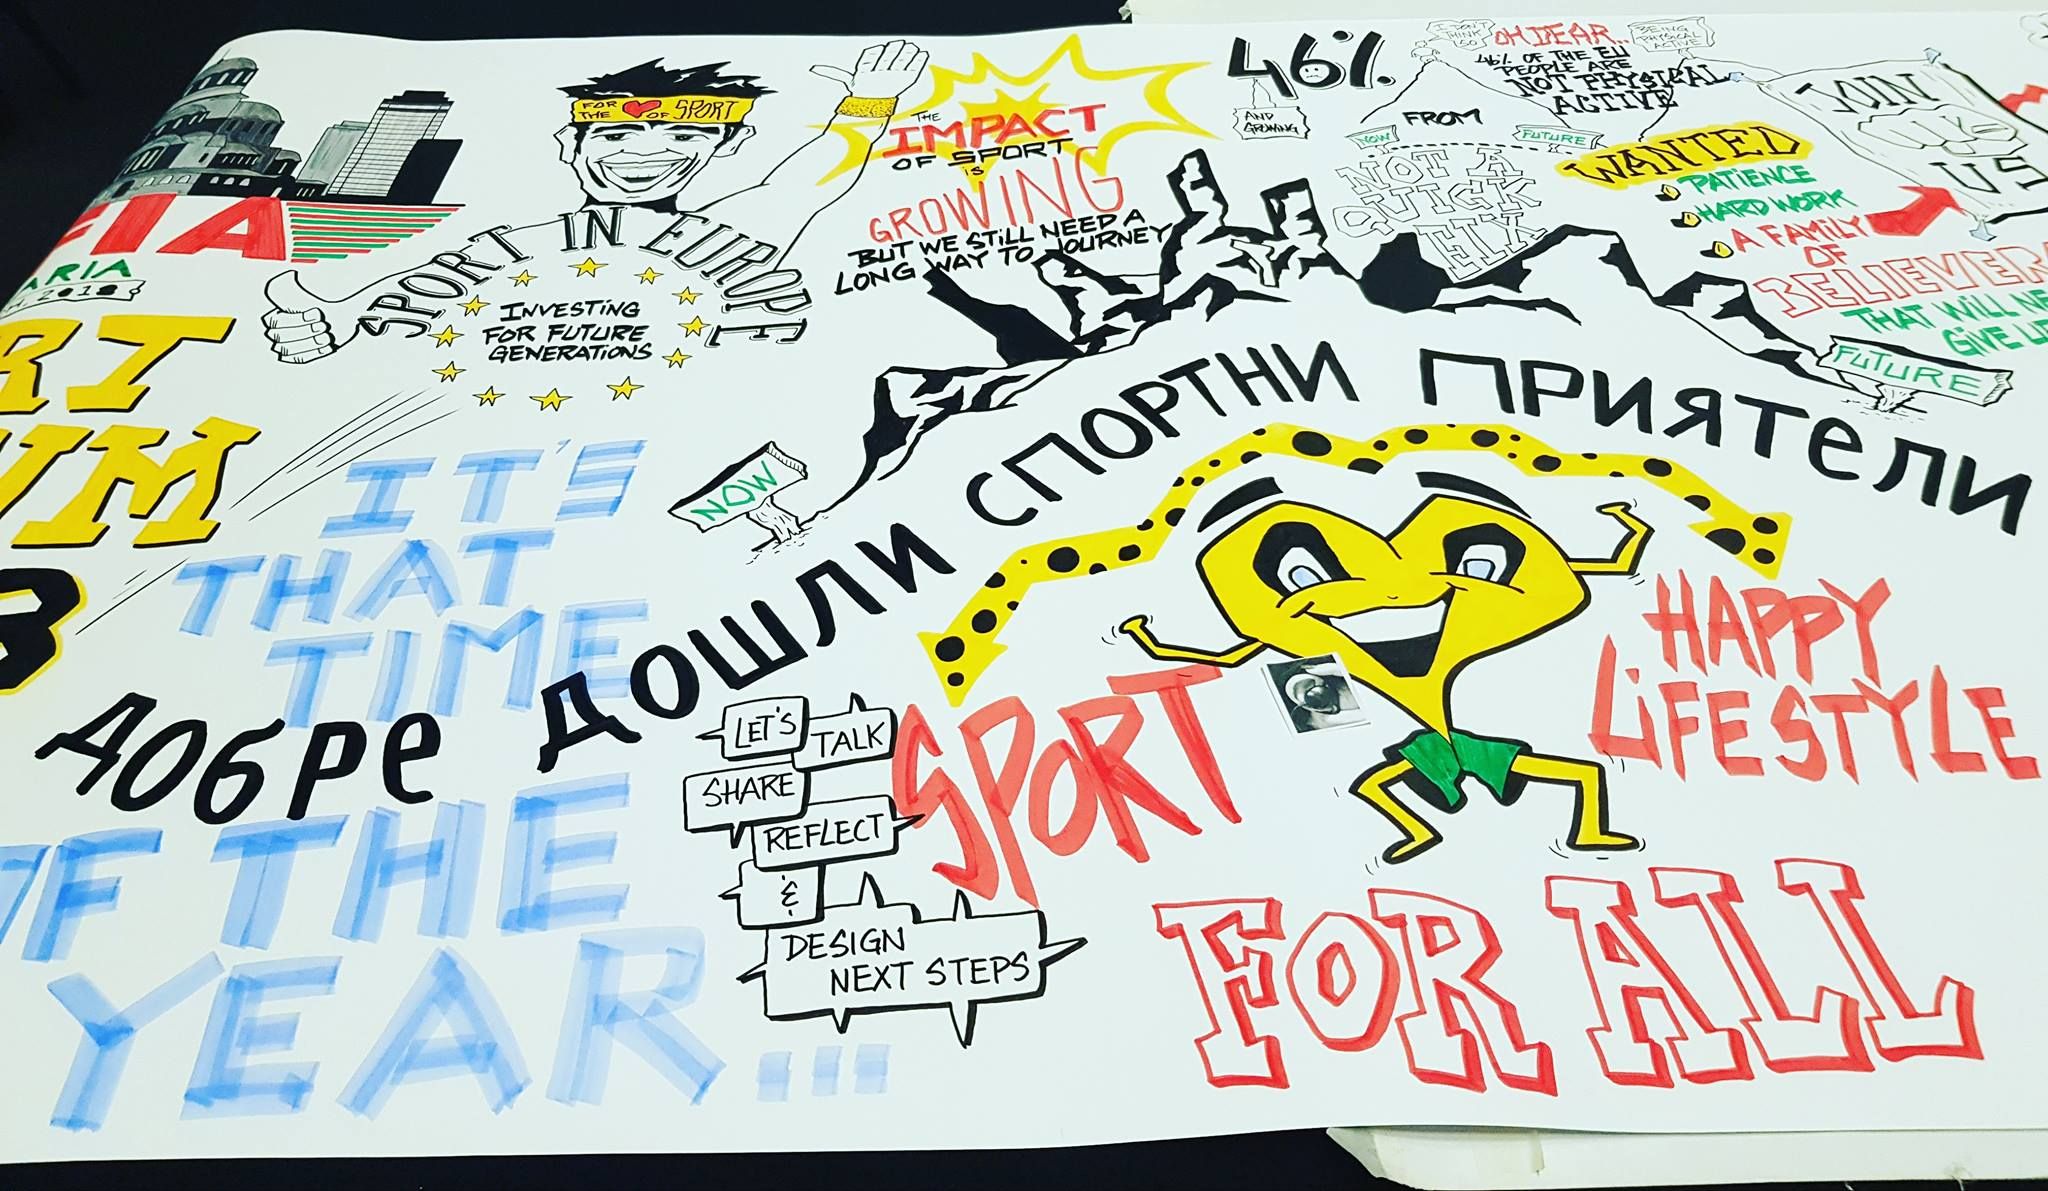 FIA
ARIA
2018
RT
UM
FOR THE OF SPORT
SPORT IN EUROPE
INVESTING
FOR FUTURE
GENERATIONS
THE
IMPACT
OF SPORT
IS
GROWING
BUT WE STILL NEED A
LONG WAY TO JOURNEY
46%
AND
GROWING
I DON'T
THINK
SO
OH DEAR...
46% OF THE EU
PEOPLE ARE
NOT PHYSICAL
ACTIVE
BEING
PHYSICAL
ACTIVE
FROM
NOW
FUTURE
NOT A
QUICK
FIX
JOIN
US
WANTED
PATIENCE
HARD WORK
A FAMILY
OF
BELIEVER
THAT WILL NE
GIVE
NOW
FUTURE
IT'S
THAT
TIME
OF THE
YEAR...
добре дошли спортни приятели
LET'S
TALK
SHARE
REFLECT
&
DESIGN
NEXT STEPS
SPORT
FOR ALL
HAPPY
LiFESTYLE